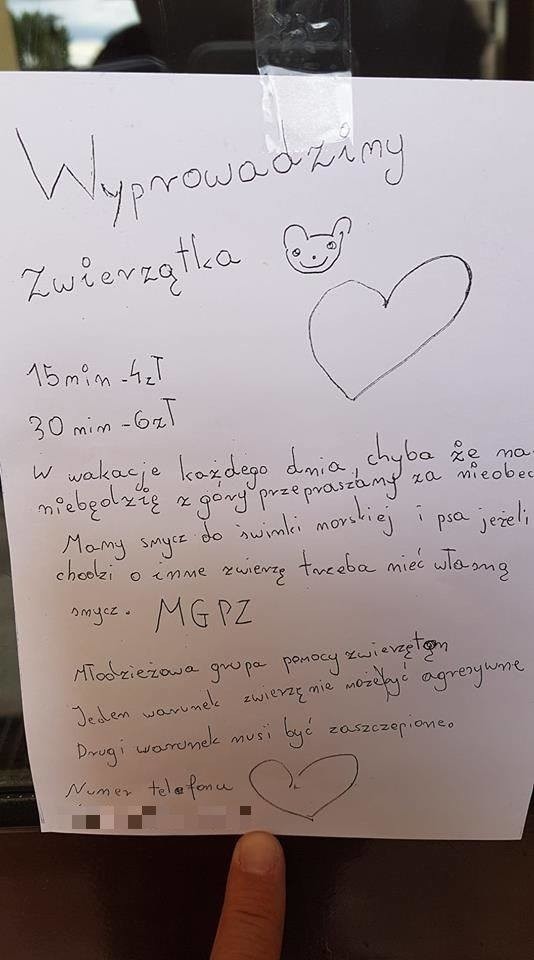 Wyprowadzimy
Zwierzątka
15min -4zł
30 min -6zł
W wakacje każdego dnia, chyba że na
niebędzię z góry przepraszamy za nieobec
Mamy smycz do świnki morskiej i psa jeżeli
chodzi o inne zwierzę trzeba mieć własną
smycz. MGPZ
Młodzieżowa grupa pomocy zwierzętom
Jeden warunek zwierzę nie może być agresywne
Drugi warunek musi być zaszczepione.
Numer telefonu